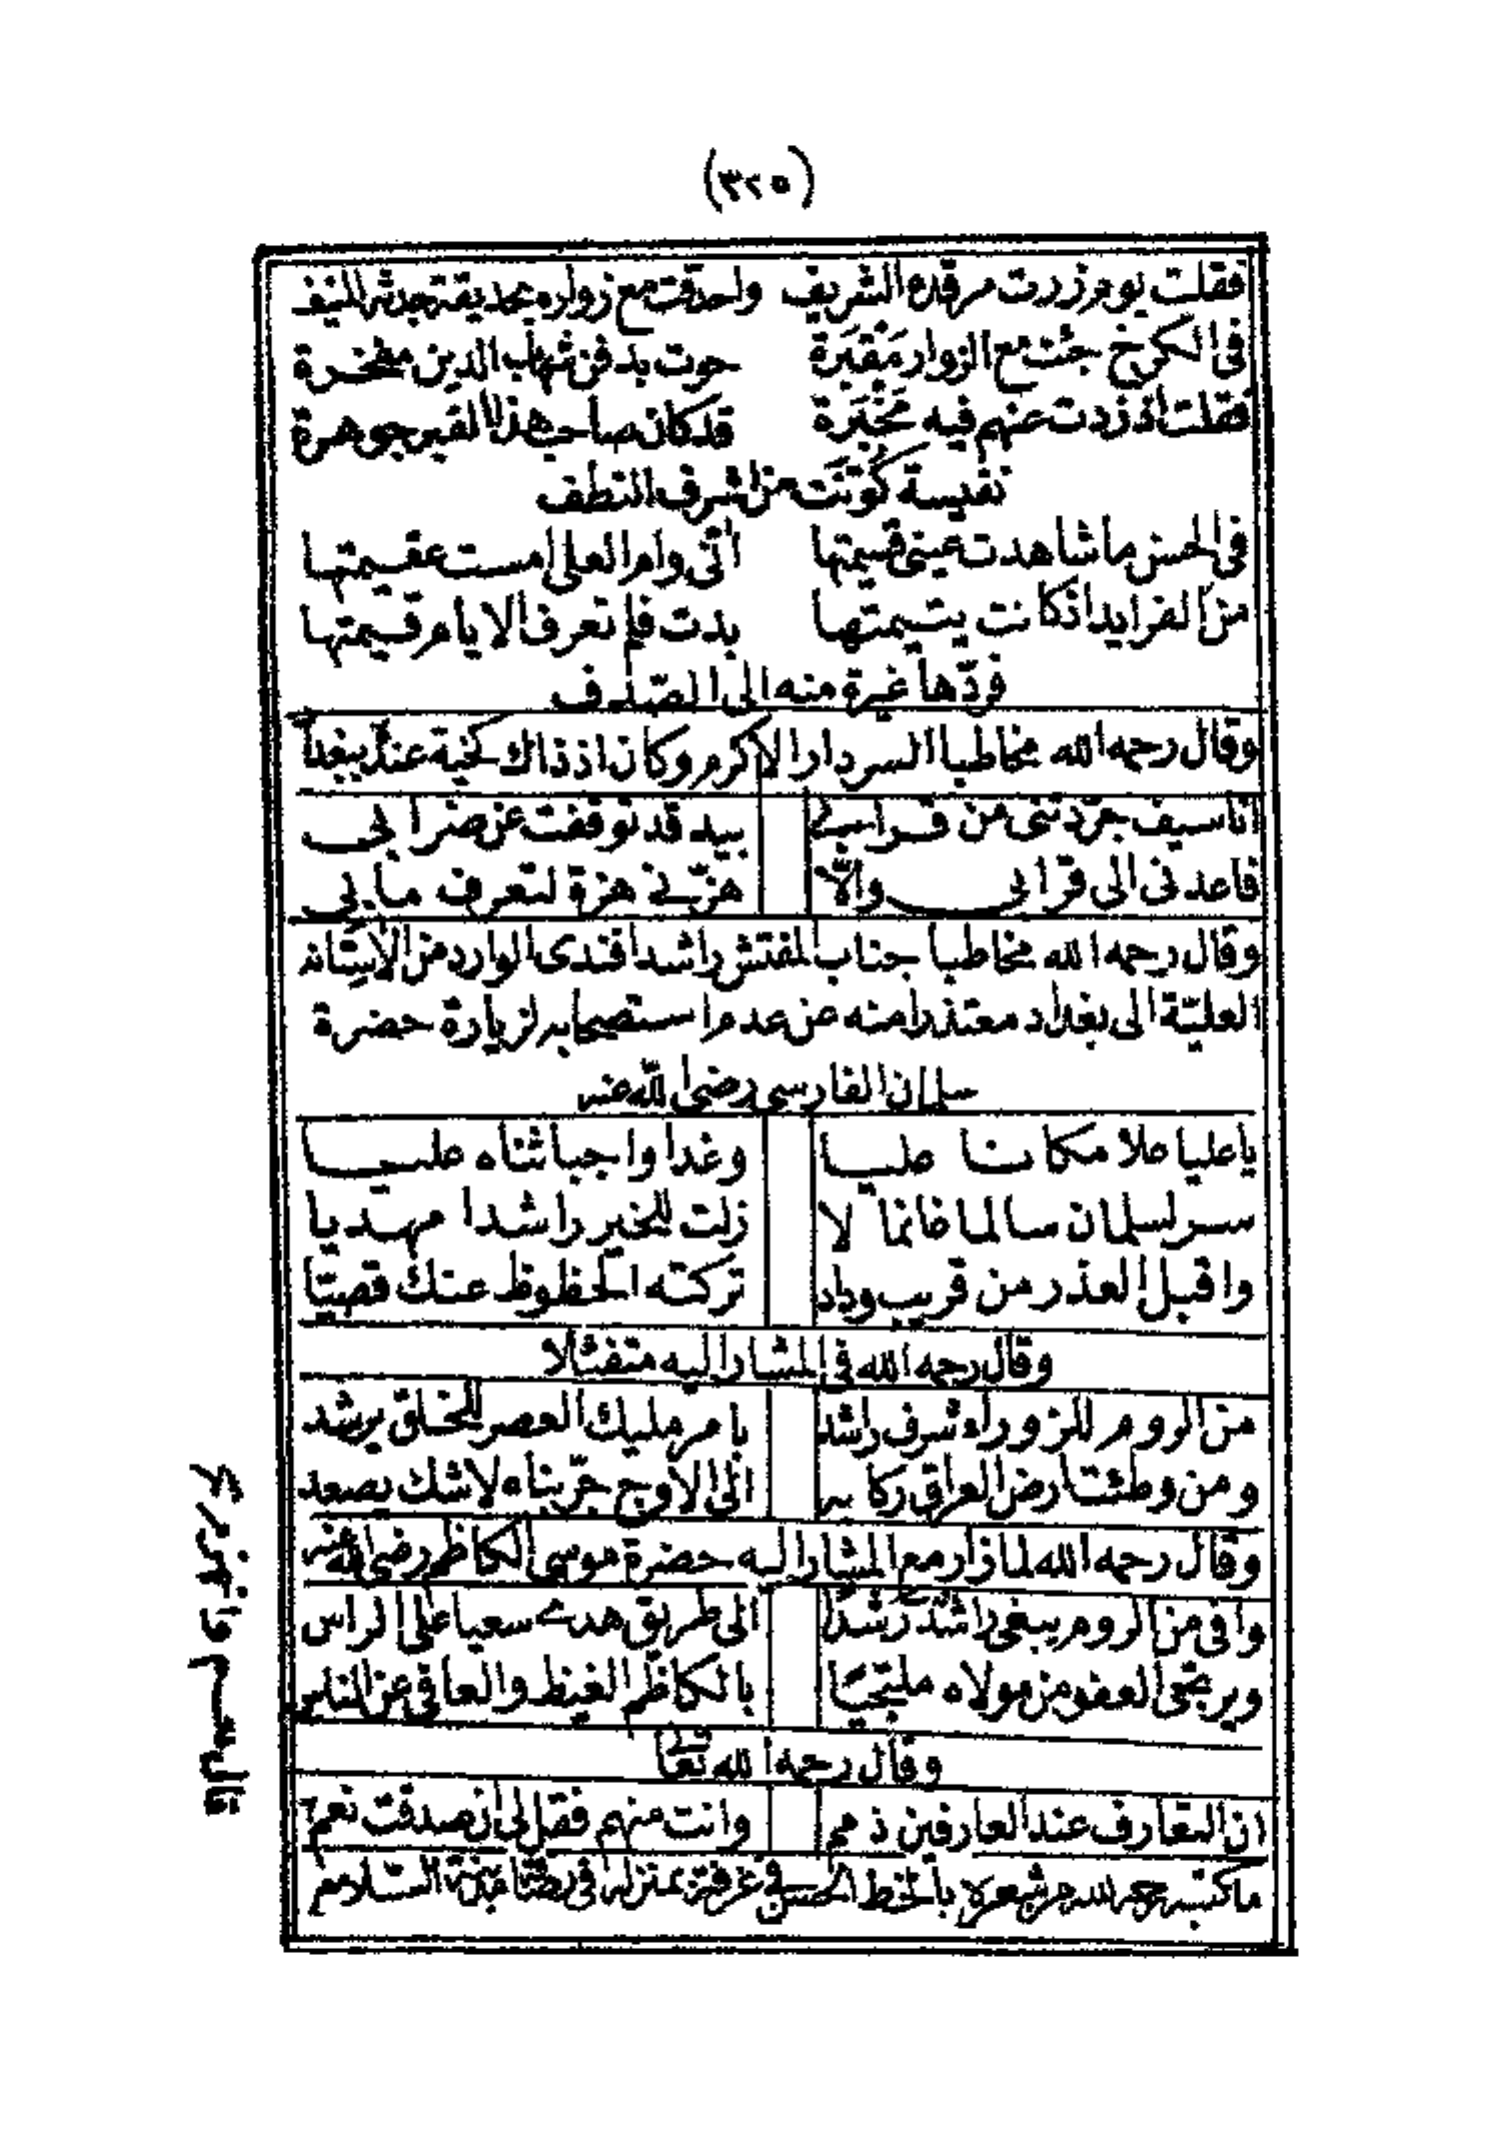 (٣٢٥)
فقلت يوم زرت مرقده الشريف واحدقت مع زواره بحديقة جدثه المنيف
في الكرخ جئت مع الزوار مَقْبَرة حوت بدفن شهاب الدين مفخرة
فقلت اذ زدت عنهم فيه مَخْبَرة قد كان صاحب هذا القبر جوهرة
نفيسة كُوّنَت من اشرف النطف
في الحسن ما شاهدت عيني قسيمتها انّى وام العلى امست عقيمتها
من الفرايد اذ كانت يتيمتها بدت فلم تعرف الايام قيمتها
فردّها غيرة منه الى الصدف
وقال رحمه الله مخاطبا السردار الاكرم وكان اذ ذاك كخية عند ببغداد
انا سيف جرّدتني من قرابي بيد قد توقفت عن ضرابي
فاعدني الى قرابي والّا هزّني هزة لتعرف ما بي
وقال رحمه الله مخاطبا جناب المفتش راشد افندى الوارد من الاستانه
العليّة الى بغداد معتذرا منه عن عدم استصحابه لزيارة حضرة
سلمان الفارسي رضي الله عنه
يا عليا علا مكانا عليا وغدا واجبا ثناه عليا
سر لسلمان سالما غانما لا زلت للخير راشدا مهديا
واقبل العذر من قريب وداد تركته الحظوظ عنك قصيّا
وقال رحمه الله في المشار اليه متفئلا
من الروم للزوراء شرف راشد بامر مليك العصر للخلق يرشد
ومن وطئت ارض العراق ركابه الى الاوج جرّبناه لا شك يصعد
وقال رحمه الله لما زار مع المشار اليه حضرة موسى الكاظم رضي الله عنه
وافى من الروم يبغي راشد رَشَدا الى طريق هدى سعيا على الراس
ويرتجى العفو من مولاه ملتجيًا بالكاظم الغيظ والعافي عن الناس
وقال رحمه الله تعالى
ان التعارف عند العارفين ذمم وانت منهم فقل لى ان صدقت نعم
ما كتبه رحمه الله من شعره بالخط الحسن في غرفة بمنزله في